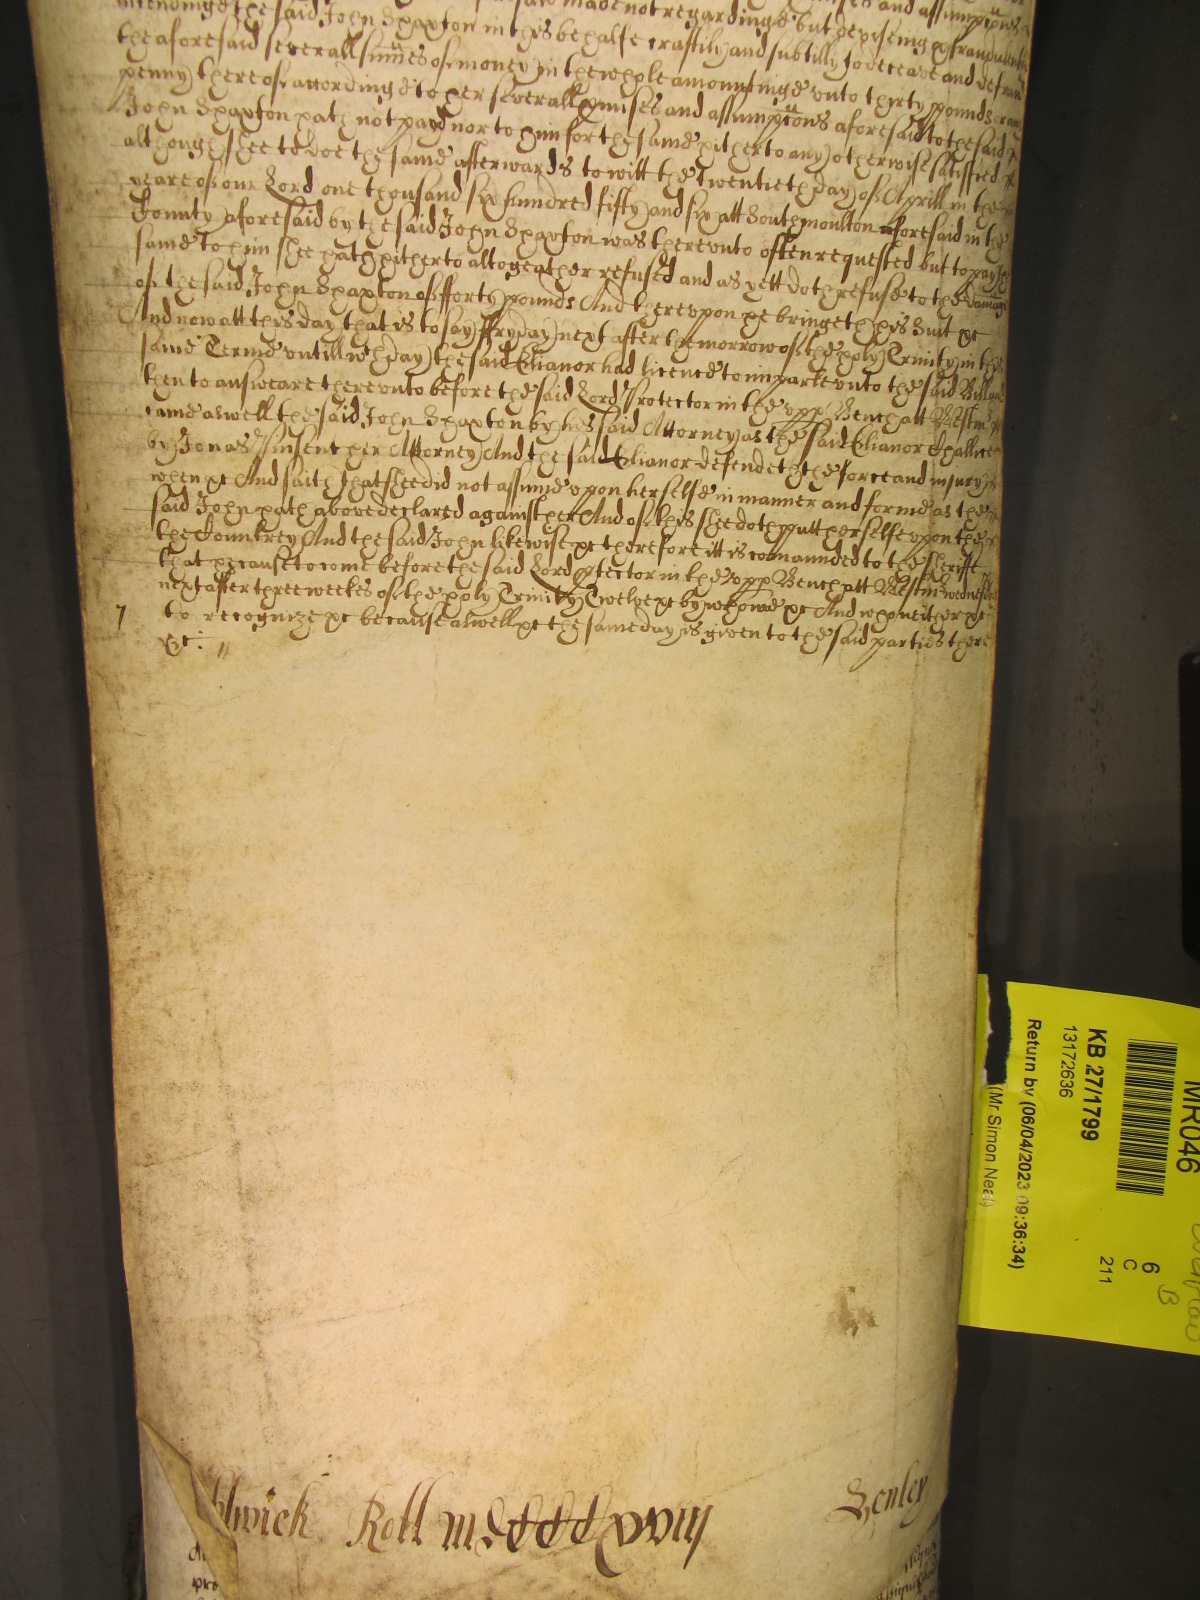 intendinge the said John Thaxton in this behalfe craftily and subtilly to deceave and defraud
the aforesaid severall sum̃es of money in the whole amountinge unto thirty pounds
penny thereof accordinge to her severall pmises and assumpc̃ons aforesaid to the said
John Thaxton hath not payd nor to him for the same hitherto any otherwise satisfied
although shee to doe the same afterwards to witt the twentieth day of Aprill in the
yeare of our Lord one thousand six hundred fifty and six att Southmoulton aforesaid in the
County aforesaid by the said John Thaxton was thereunto often requested but to pay the
same to him shee hath hitherto altogeather refused and as yett doth refuse to the damage
of the said John Thaxton of forty pounds And thereupon he bringeth his Suit &c
And now att this day that is to say ffryday next after the morrow of the holy Trinity in this
same Terme untill wch day the said Elianor had licence to imparle unto the said Bill and
then to answeare thereunto before the said Lord Protector in the upp Bench att Westm
came aswell the said John Thaxton by his said Attorney as the said Elianor
by Jonas her Attorney And the said Elianor defendeth the force and injury
when &c And saith That shee did not assume upon herselfe in manner and forme as the
said John hath above declared against her And of this shee doth putt herselfe upon the
the Countrey And the said John likewise &c therefore itt is comaunded to the Sheriffe
that he cause to come before the said Lord ptector in the upp Bench att Westm wednesday
next after three weekes of the holy Trinity Twelve &c by whome &c And who neither &c
7 to recognize &c because aswell &c the same day is given to the said parties there
&c: //
Roll
Henley
MR046
KB 27/1799
13172636
Return by (06/04/2023 09:36:34)
(Mr Simon Neal)
6
C
211
B